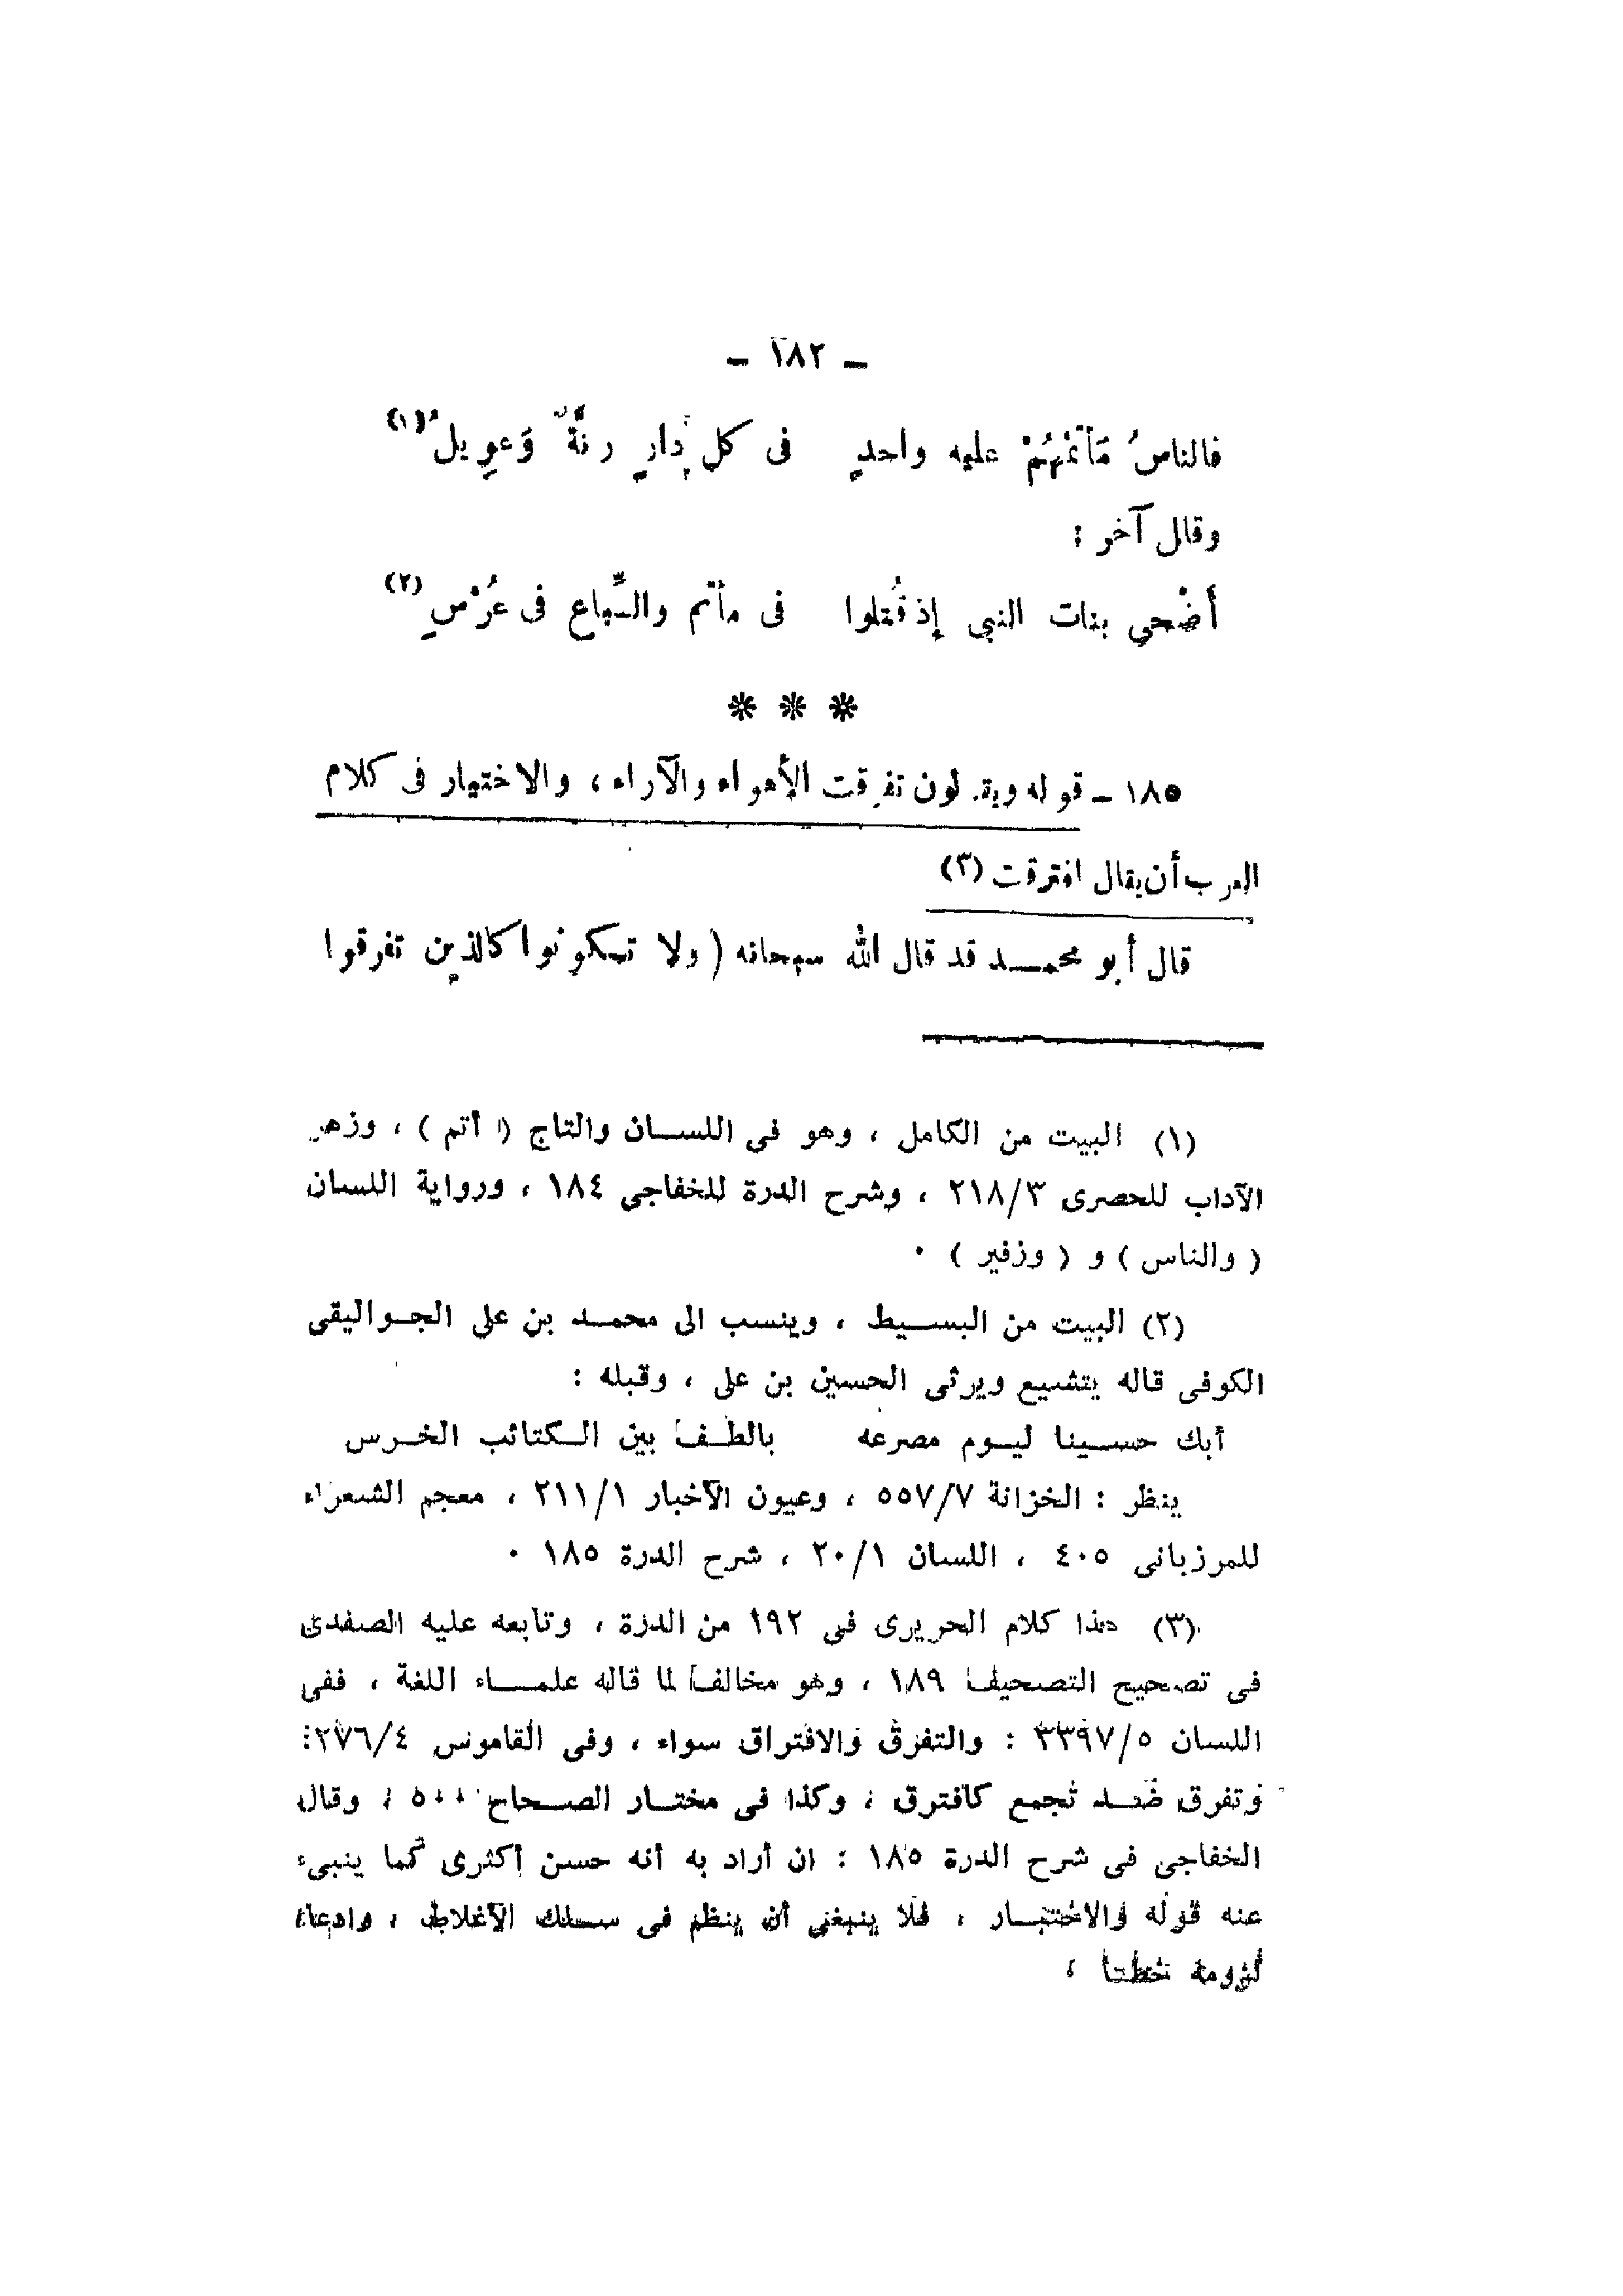 – ١٨٢ –
فالناسُ مَأتمُهُمْ عليه واحدٍ فى كل دارٍ رنَّةٌ وَعوِيلُ (١)
وقال آخر :
أَضْحي بنات النبى إذ قُتلوا فى مأتم والسِّباع فى عُرْسٍ (٢)
* * *
١٨٥ – قوله ويقولون تفرقت الأهواء والآراء ، والاختيار فى كلام
العرب أن يقال افترقت (٣)
قال أبو محمد قد قال الله سبحانه ( ولا تكونوا كالذين تفرقوا
(١) البيت من الكامل ، وهو فى اللسان والتاج ( أتم ) ، وزهر
الآداب للحصرى ٢١٨/٣ ، وشرح الدرة للخفاجى ١٨٤ ، ورواية اللسان
( والناس ) و ( وزفير ) ٠
(٢) البيت من البسيط ، وينسب الى محمد بن على الجواليقى
الكوفى قاله يتشيع ويرثى الحسين بن على ، وقبله :
أبك حسينا ليوم مصرعه بالطف بين الكتائب الخرس
ينظر : الخزانة ٥٥٧/٧ ، وعيون الأخبار ٢١١/١ ، معجم الشعراء
للمرزبانى ٤٠٥ ، اللسان ٢٠/١ ، شرح الدرة ١٨٥ ٠
(٣) هذا كلام الحريرى فى ١٩٢ من الدرة ، وتابعه عليه الصفدى
فى تصحيح التصحيف ١٨٩ ، وهو مخالف لما قاله علماء اللغة ، ففى
اللسان ٣٣٩٧/٥ : والتفرق والافتراق سواء ، وفى القاموس ٢٧٦/٤ :
وتفرق ضد تجمع كافترق ، وكذا فى مختار الصحاح ٥٠٠ ، وقال
الخفاجى فى شرح الدرة ١٨٥ : ان أراد به أنه حسن أكثرى كما ينبىء
عنه قوله والاختيار ، فلا ينبغى أن ينظم فى سلك الأغلاط ، وادعاء
لزومه خطأ ،